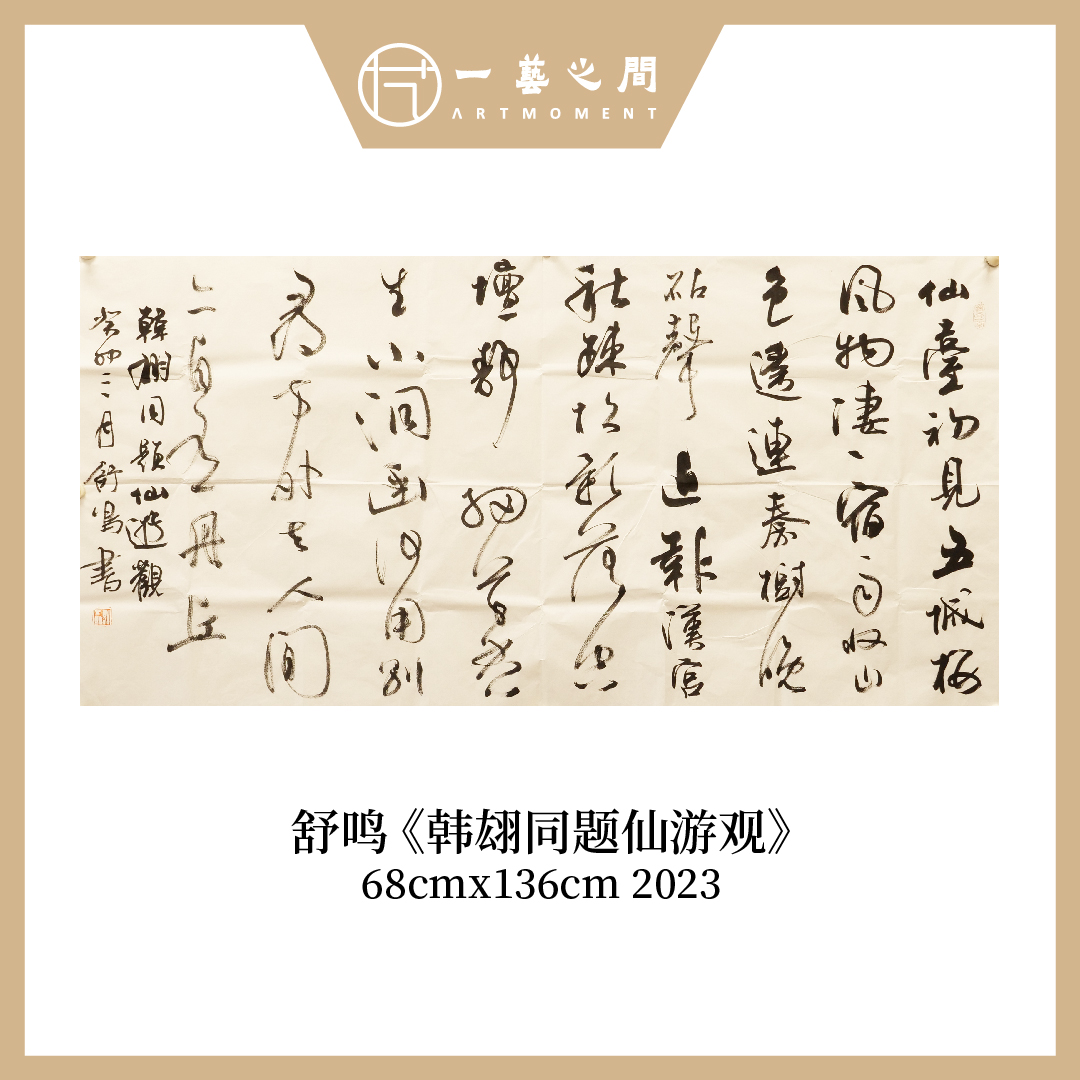 一藝之間
ARTMOMENT
仙臺初見五城樓
風物凄々宿雨收山
色遙連秦樹晚
砧聲近報漢宮
秋疎松影落空
壇靜細草香
生小洞幽何用別
尋方外去人間
亦自有丹丘
韓翃同題仙遊觀
癸卯二月舒鳴書
舒鸣《韩翃同题仙游观》
68cmx136cm 2023